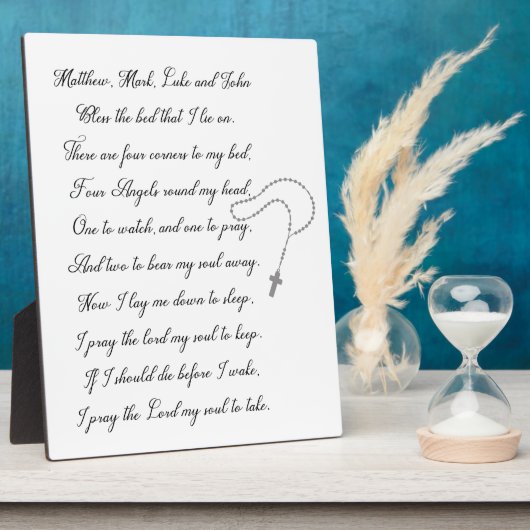 Matthew, Mark, Luke and John
Bless the bed that I lie on.
There are four corners to my bed,
Four Angels round my head,
One to watch, and one to pray,
And two to bear my soul away.
Now I lay me down to sleep,
I pray the lord my soul to keep.
If I should die before I wake,
I pray the Lord my soul to take.